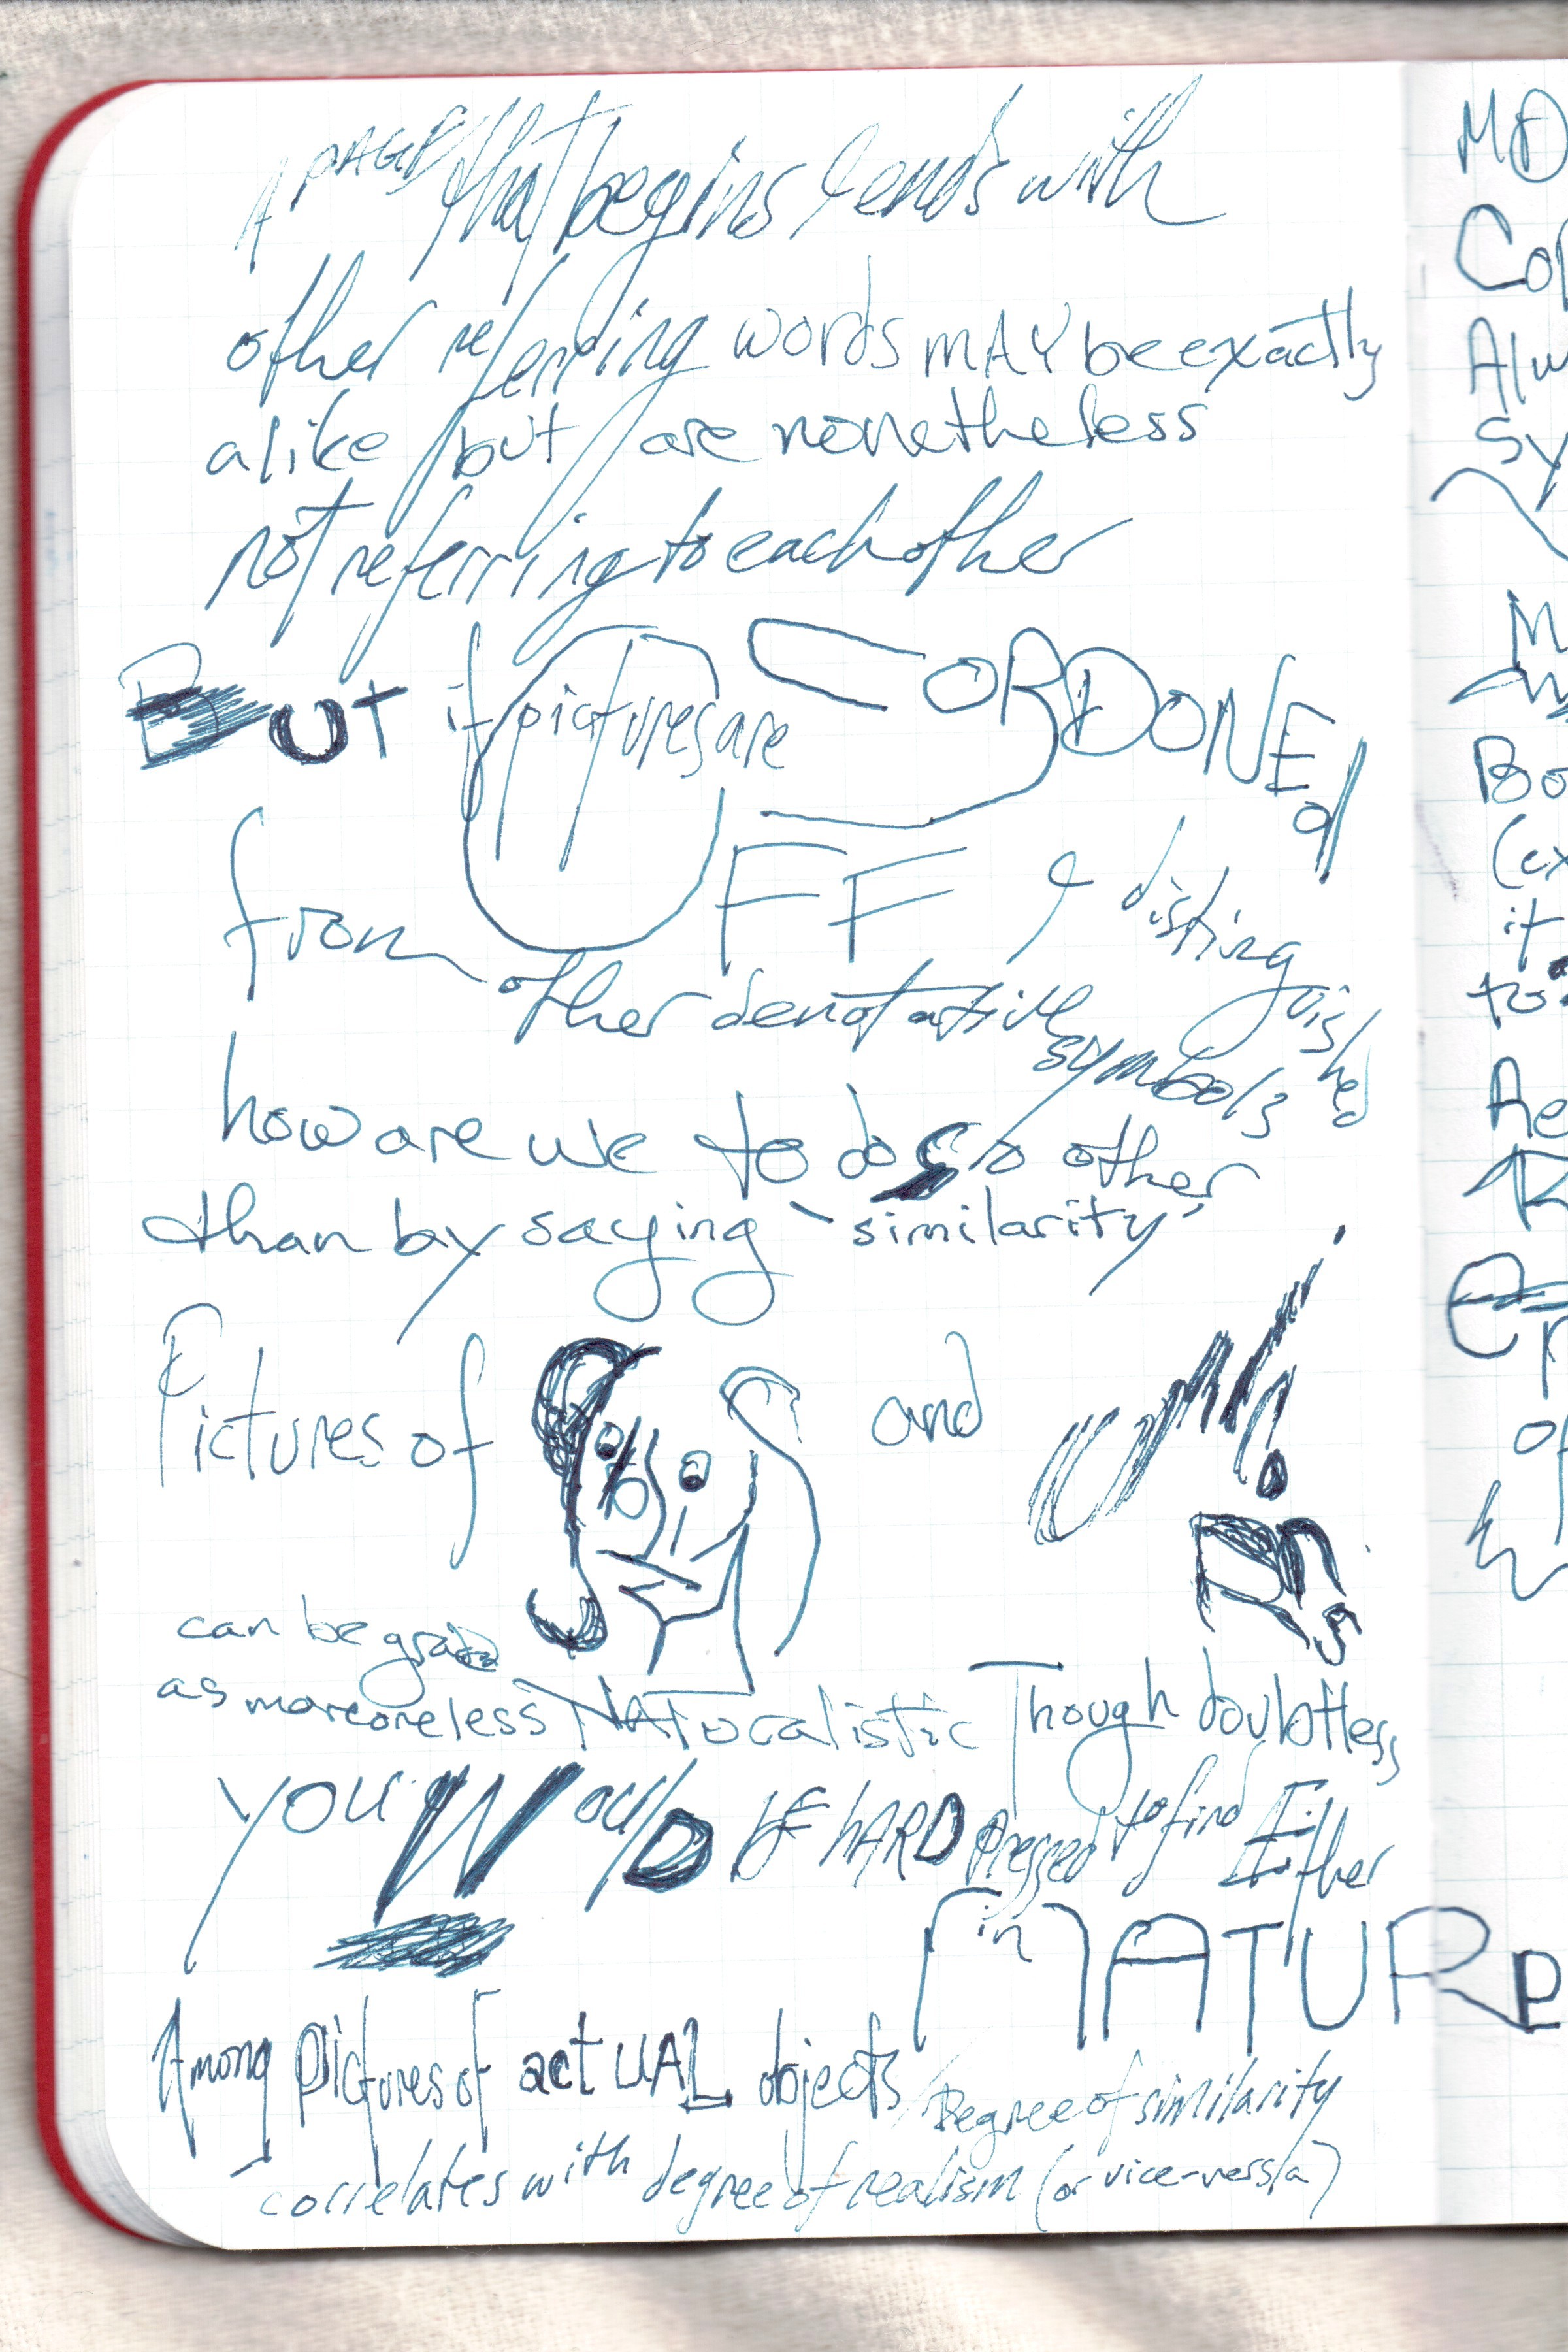 A PAGE that begins & ends with
other referring words MAY be exactly
alike but are nonetheless
not referring to each other
BUT if pictures are CORDONEd
from OFF & distinguished
other denotative symbols
how are we to do so other
than by saying 'similarity'
Pictures of and
can be
as more or less NATuralistic Though doubtless
YOU WoulD bE hARD pressed to find Either
in NATURe
Among Pictures of actUAL objects / Degree of similarity
correlates with degree of realism (or vice-versa)
MO
Con
Alw
Sy
M
Bo
(ex
it
to
Re
of